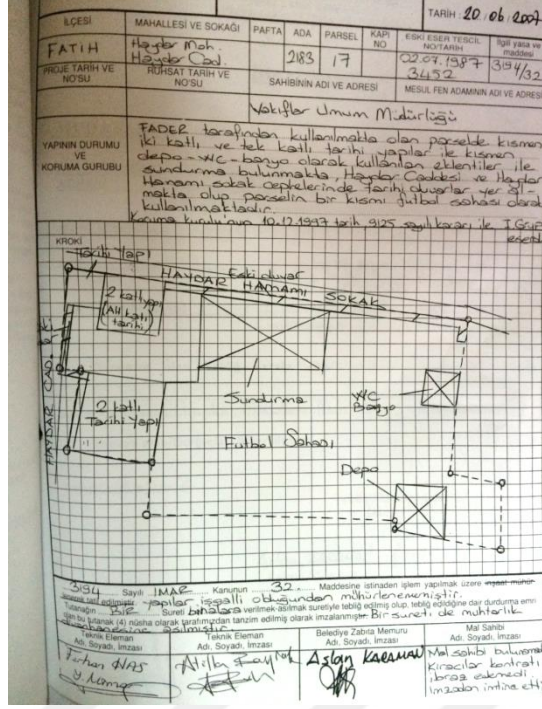 TARİH: 20.06.2007
İLÇESİ
MAHALLESİ VE SOKAĞI
PAFTA
ADA
PARSEL
KAPI NO
ESKİ ESER TESCİL NO/TARİHİ
İlgili yasa ve maddesi
FATİH
Haydar Mah.
Haydar Cad.
2183
17
02.07.1987
3452
3194/32
PROJE TARİH VE NO'SU
RUHSAT TARİH VE NO'SU
SAHİBİNİN ADI VE ADRESİ
MESUL FEN ADAMININ ADI VE ADRESİ
Vakıflar Umum Müdürlüğü
YAPININ DURUMU VE KORUMA GURUBU
FADER tarafından kullanılmakta olan parselde kısmen
iki katlı ve tek katlı tarihi yapılar ile kısmen
depo-WC-banyo olarak kullanılan eklentiler ile
sundurma bulunmakta, Haydar Caddesi ve Haydar
Hamamı sokak cephelerinde tarihi duvarlar yer al-
makta olup parselin bir kısmı futbol sahası olarak
kullanılmaktadır.
Koruma kurulu'nun 10.12.1997 tarih 9125 sayılı kararı ile I.Grup
eserdir
KROKİ
Tarihi Yapı
Eski duvar
HAYDAR HAMAMI SOKAK
2 katlı yapı
(Alt katı tarihi)
HAYDAR CAD.
Sundurma
WC
Banyo
2 katlı
Tarihi Yapı
Futbol Sahası
Depo
3194 Sayılı İMAR Kanunun 32. Maddesine istinaden işlem yapılmak üzere
yapılar işgalli olduğundan mühürlenememiştir.
Tutanağın BİR Sureti binalara verilmek-asılmak suretiyle tebliğ edilmiş olup, tebliğ edildiğine dair durduma
işbu tutanak (4) nüsha olarak tarafımızdan tanzim edilmiş olarak imzalanmıştır. Bir sureti de muhtarlık
asılmıştır
Teknik Eleman
Adı, Soyadı, İmzası
Teknik Eleman
Adı, Soyadı, İmzası
Belediye Zabıta Memuru
Adı, Soyadı, İmzası
Mal Sahibi
Adı, Soyadı, İmzası
NAS
Y. Mimar
Atilla
Aslan KARAMAN
Mal sahibi
Kiracılar kontratı
ibraz edemedi
İmzadan imtina etti